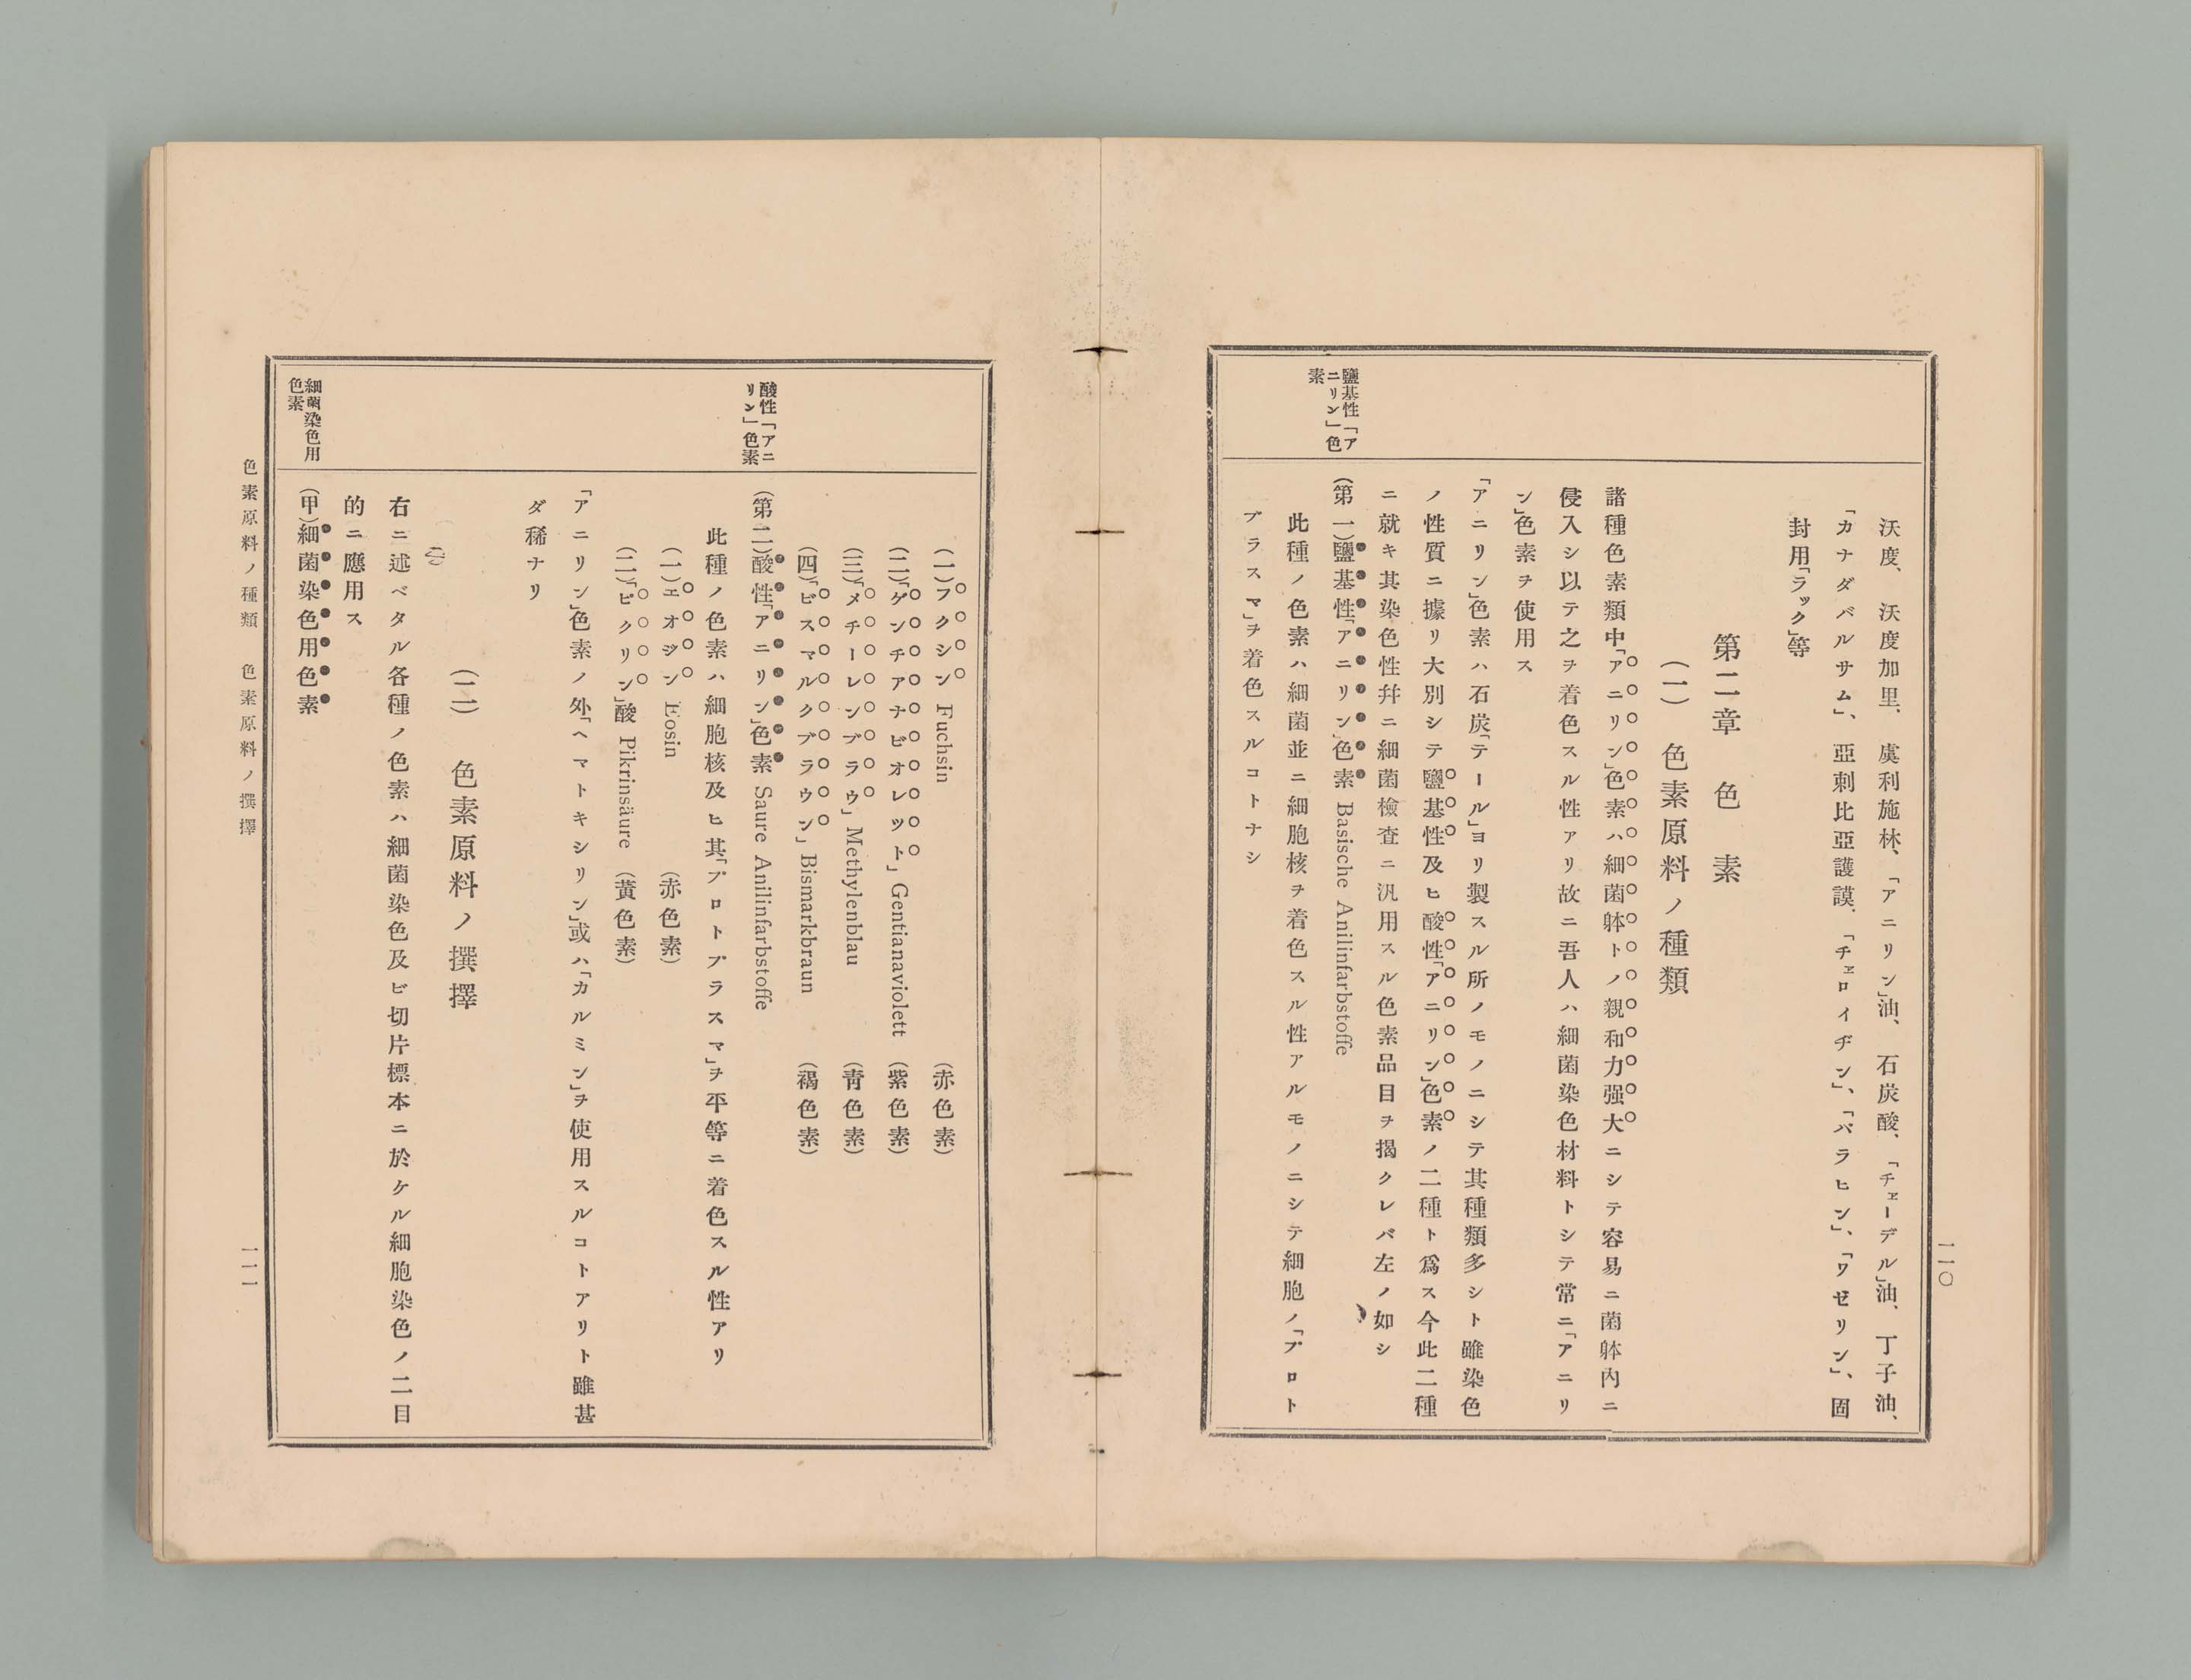 一一〇
沃度、沃度加里、虞利施林、「アニリン」油、石炭酸、「チェーデル」油、丁子油、
「カナダバルサム」、亞刺比亞護謨、「チェロイヂン」、「パラヒン」、「ワゼリン」、固
封用「ラック」等
第二章 色素
(一) 色素原料ノ種類
諸種色素類中「アニリン」色素ハ細菌躰トノ親和力强大ニシテ容易ニ菌躰內ニ
侵入シ以テ之ヲ着色スル性アリ故ニ吾人ハ細菌染色材料トシテ常ニ「アニリ
ン」色素ヲ使用ス
「アニリン」色素ハ石炭「テール」ヨリ製スル所ノモノニシテ其種類多シト雖染色
ノ性質ニ據リ大別シテ鹽基性及ヒ酸性「アニリン」色素ノ二種ト爲ス今此二種
ニ就キ其染色性幷ニ細菌檢査ニ汎用スル色素品目ヲ揭クレバ左ノ如シ
鹽基性「ア
ニリン」色
素
(第一)鹽基性「アニリン」色素 Basische Anilinfarbstoffe
此種ノ色素ハ細菌並ニ細胞核ヲ着色スル性アルモノニシテ細胞ノ「プロト
プラスマ」ヲ着色スルコトナシ
(一)フクシン Fuchsin (赤色素)
(二)「ゲンチアナビオレット」 Gentianaviolett (紫色素)
(三)「メチーレンブラウ」 Methylenblau (靑色素)
(四)「ビスマルクブラウン」 Bismarkbraun (褐色素)
酸性「アニ
リン」色素
(第二)酸性「アニリン」色素 Saure Anilinfarbstoffe
此種ノ色素ハ細胞核及ヒ其「プロトプラスマ」ヲ平等ニ着色スル性アリ
(一)エオジン Eosin (赤色素)
(二)「ピクリン」酸 Pikrinsäure (黃色素)
「アニリン」色素ノ外「ヘマトキシリン」或ハ「カルミン」ヲ使用スルコトアリト雖甚
ダ稀ナリ
(二) 色素原料ノ撰擇
右ニ述ベタル各種ノ色素ハ細菌染色及ビ切片標本ニ於ケル細胞染色ノ二目
的ニ應用ス
細菌染色用
色素
(甲)細菌染色用色素
色素原料ノ種類 色素原料ノ撰擇
一一一